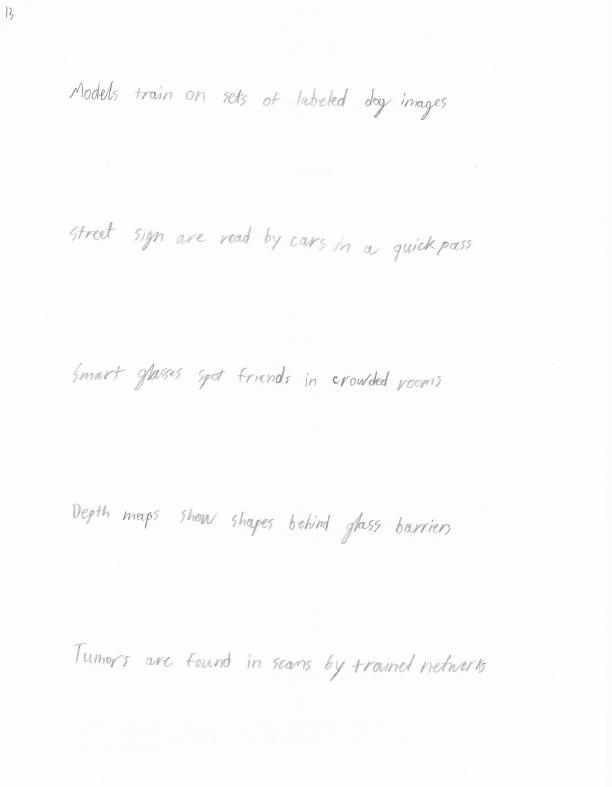 13
Models train on sets of labeled dog images
Street sign are read by cars in a quick pass
Smart glasses spot friends in crowded rooms
Depth maps show shapes behind glass barriers
Tumors are found in scans by trained networks